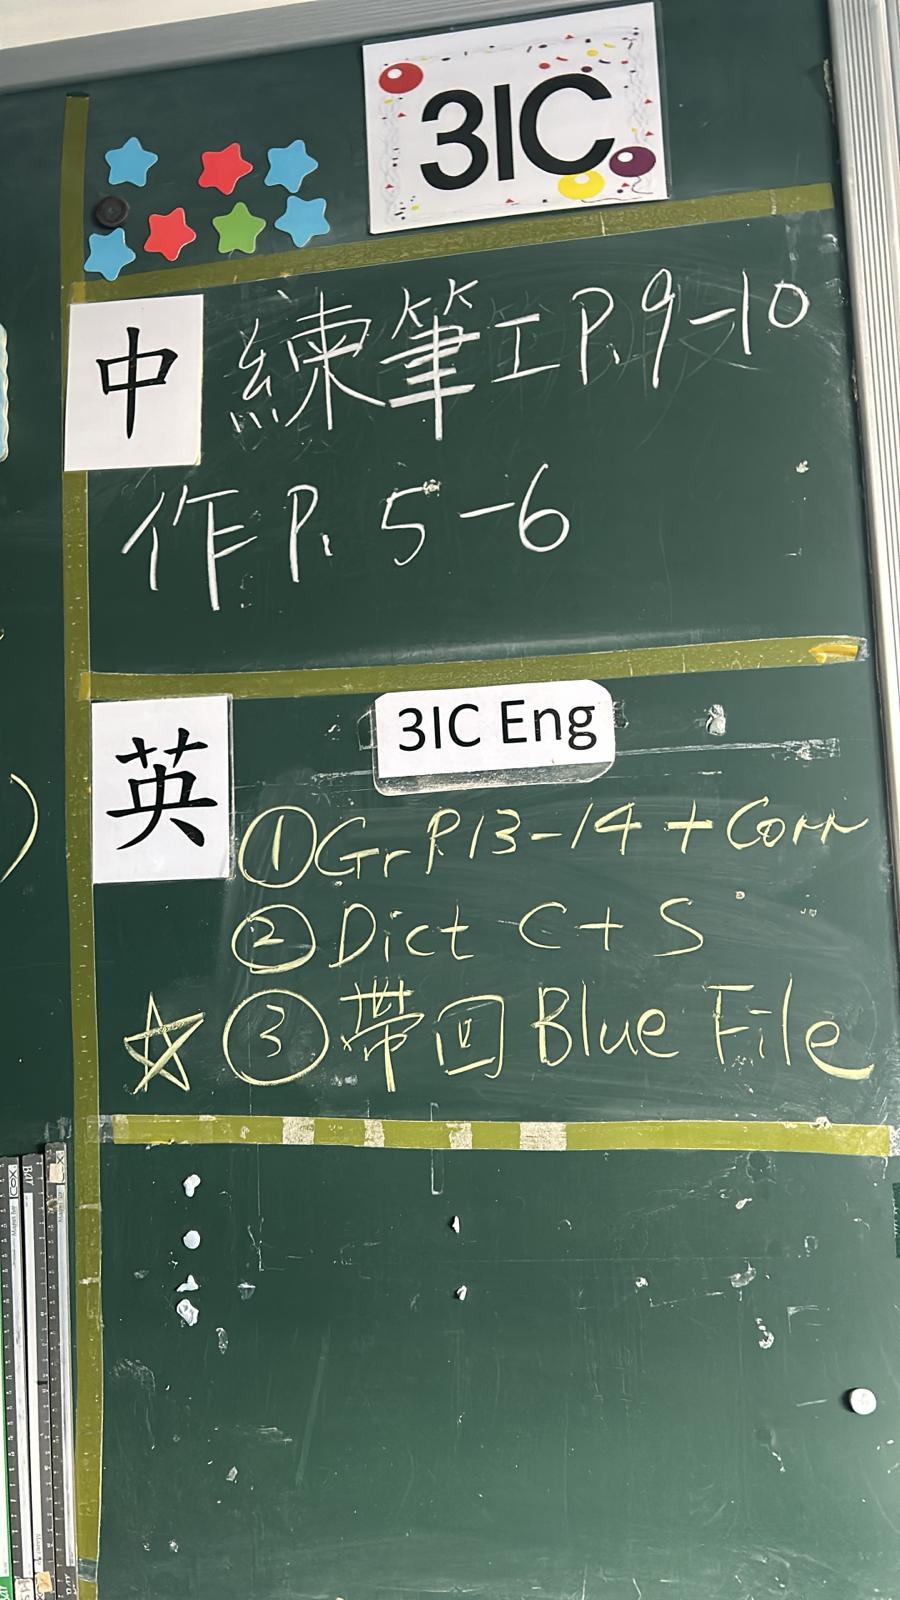 3IC
中 練筆工 P.9-10
作 P. 5-6
英 3IC Eng
①Gr P.13-14 + Corr
②Dict C + S
☆ ③帶回 Blue File